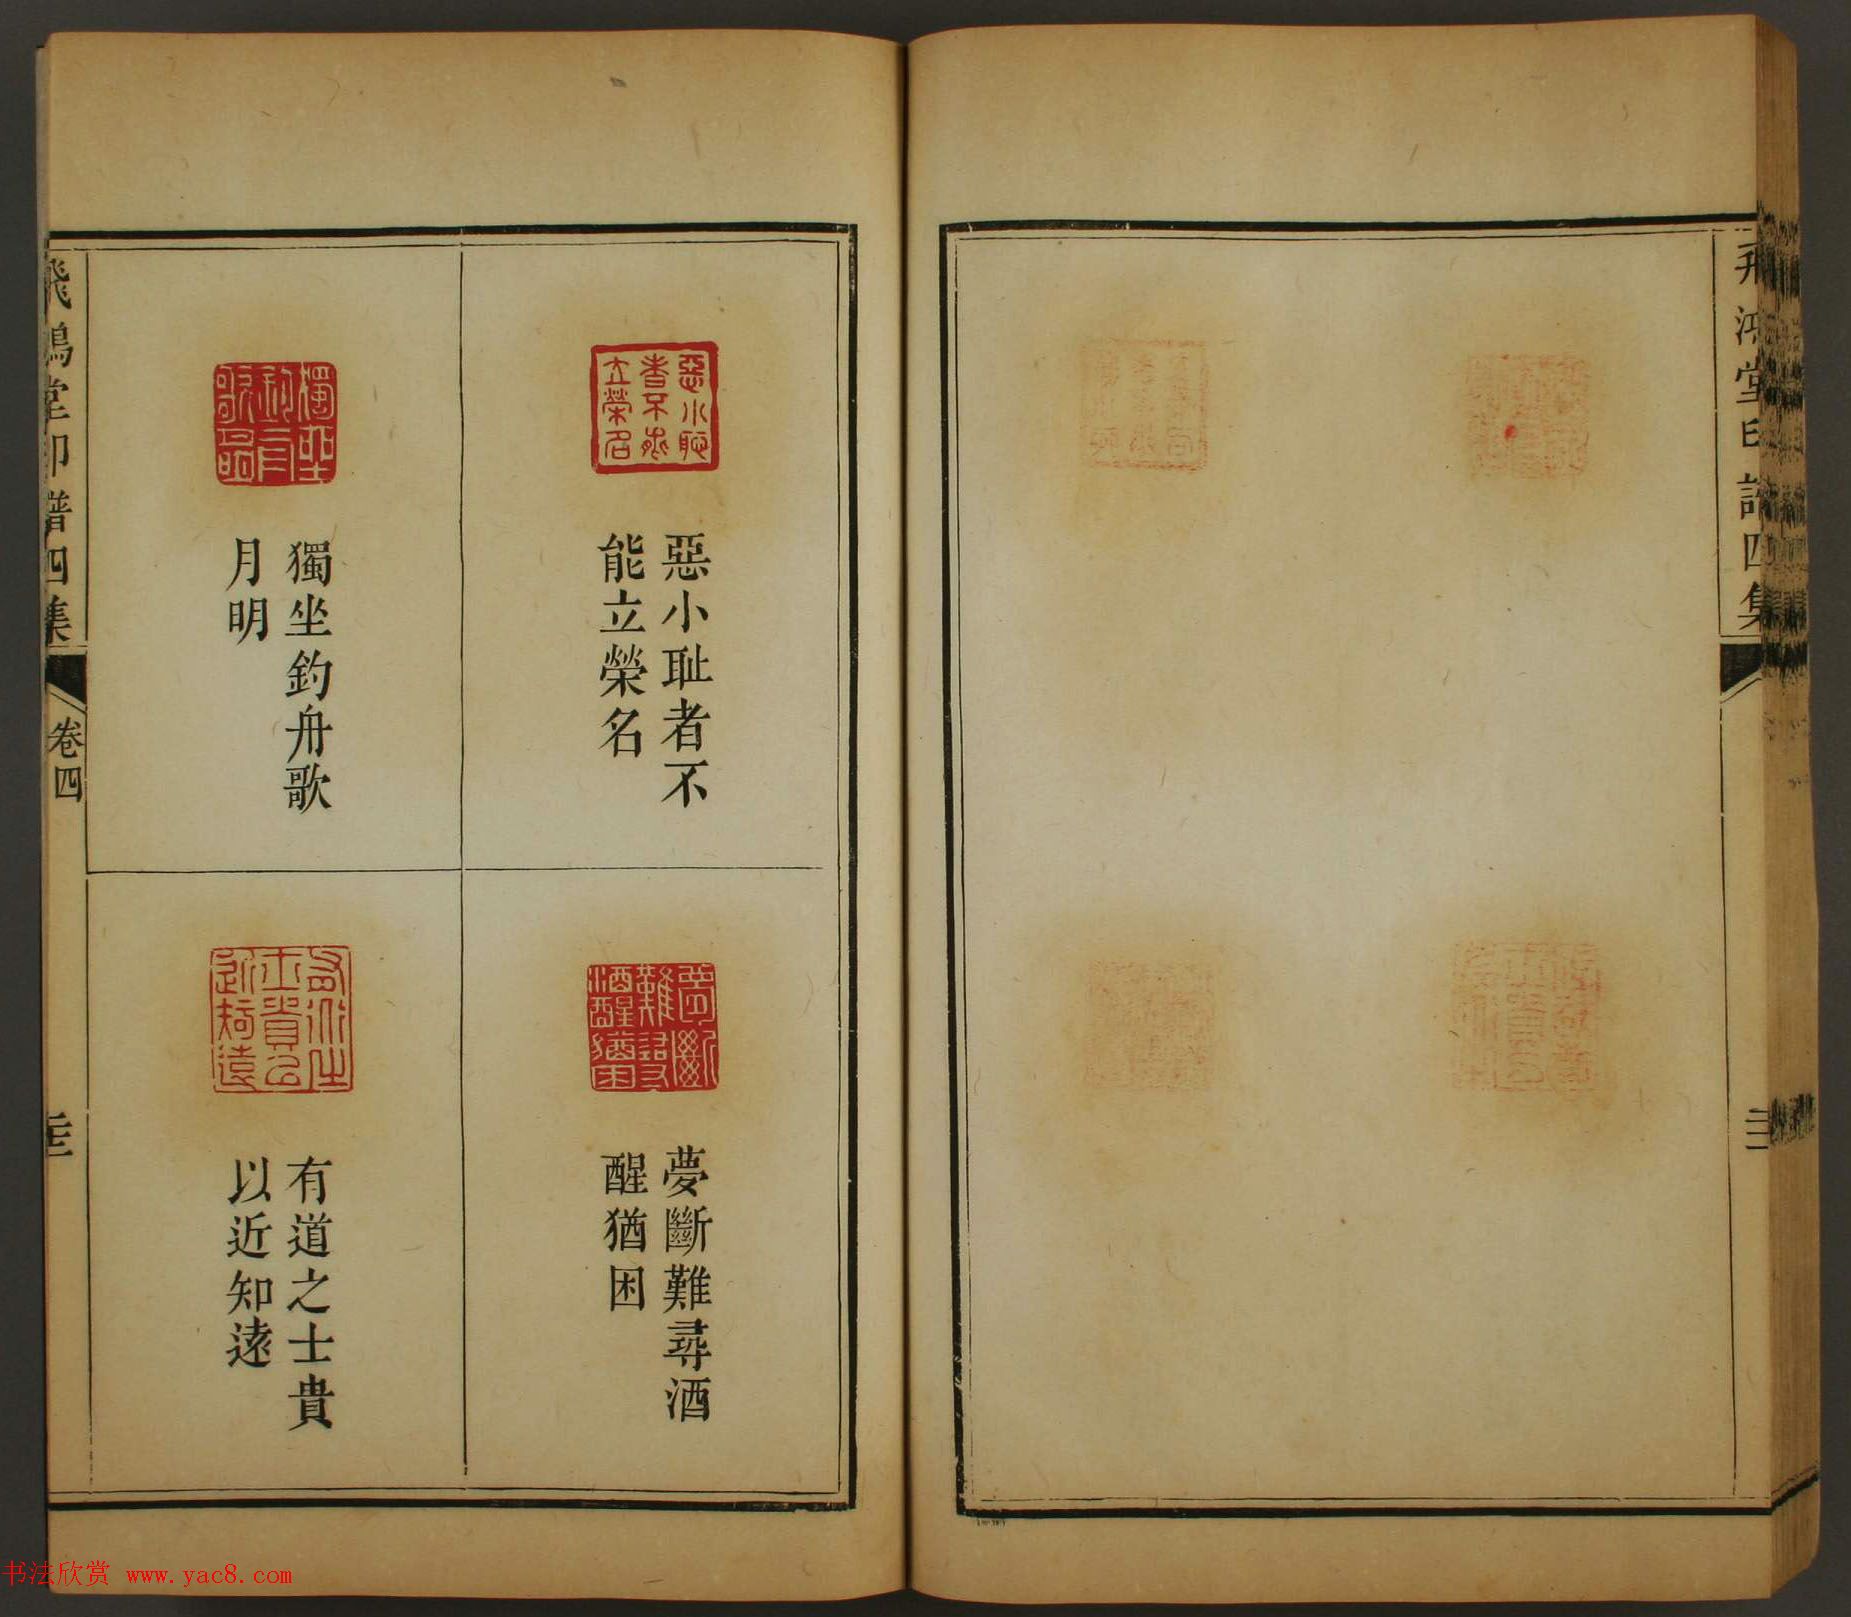 飛鴻堂印譜四集
惡小耻者不
能立榮名
夢斷難尋酒
醒猶困
獨坐釣舟歌
月明
有道之士貴
以近知遠
飛鴻堂印譜四集
卷四
书法欣赏 www.yac8.com